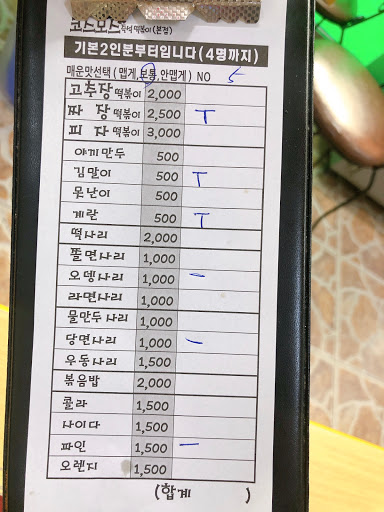 코스모스 즉석떡볶이(본점)
기본2인분부터입니다(4명까지)
매운맛선택(맵게,보통,안맵게) NO 5
고추장떡볶이 2,000
짜장떡볶이 2,500 T
피자떡볶이 3,000
야끼만두 500
김말이 500 T
못난이 500
계란 500 T
떡사리 2,000
쫄면사리 1,000
오뎅사리 1,000 一
라면사리 1,000
물만두사리 1,000
당면사리 1,000 一
우동사리 1,500
볶음밥 2,000
콜라 1,500
사이다 1,500
파인 1,500 一
오렌지 1,500
(합계 )